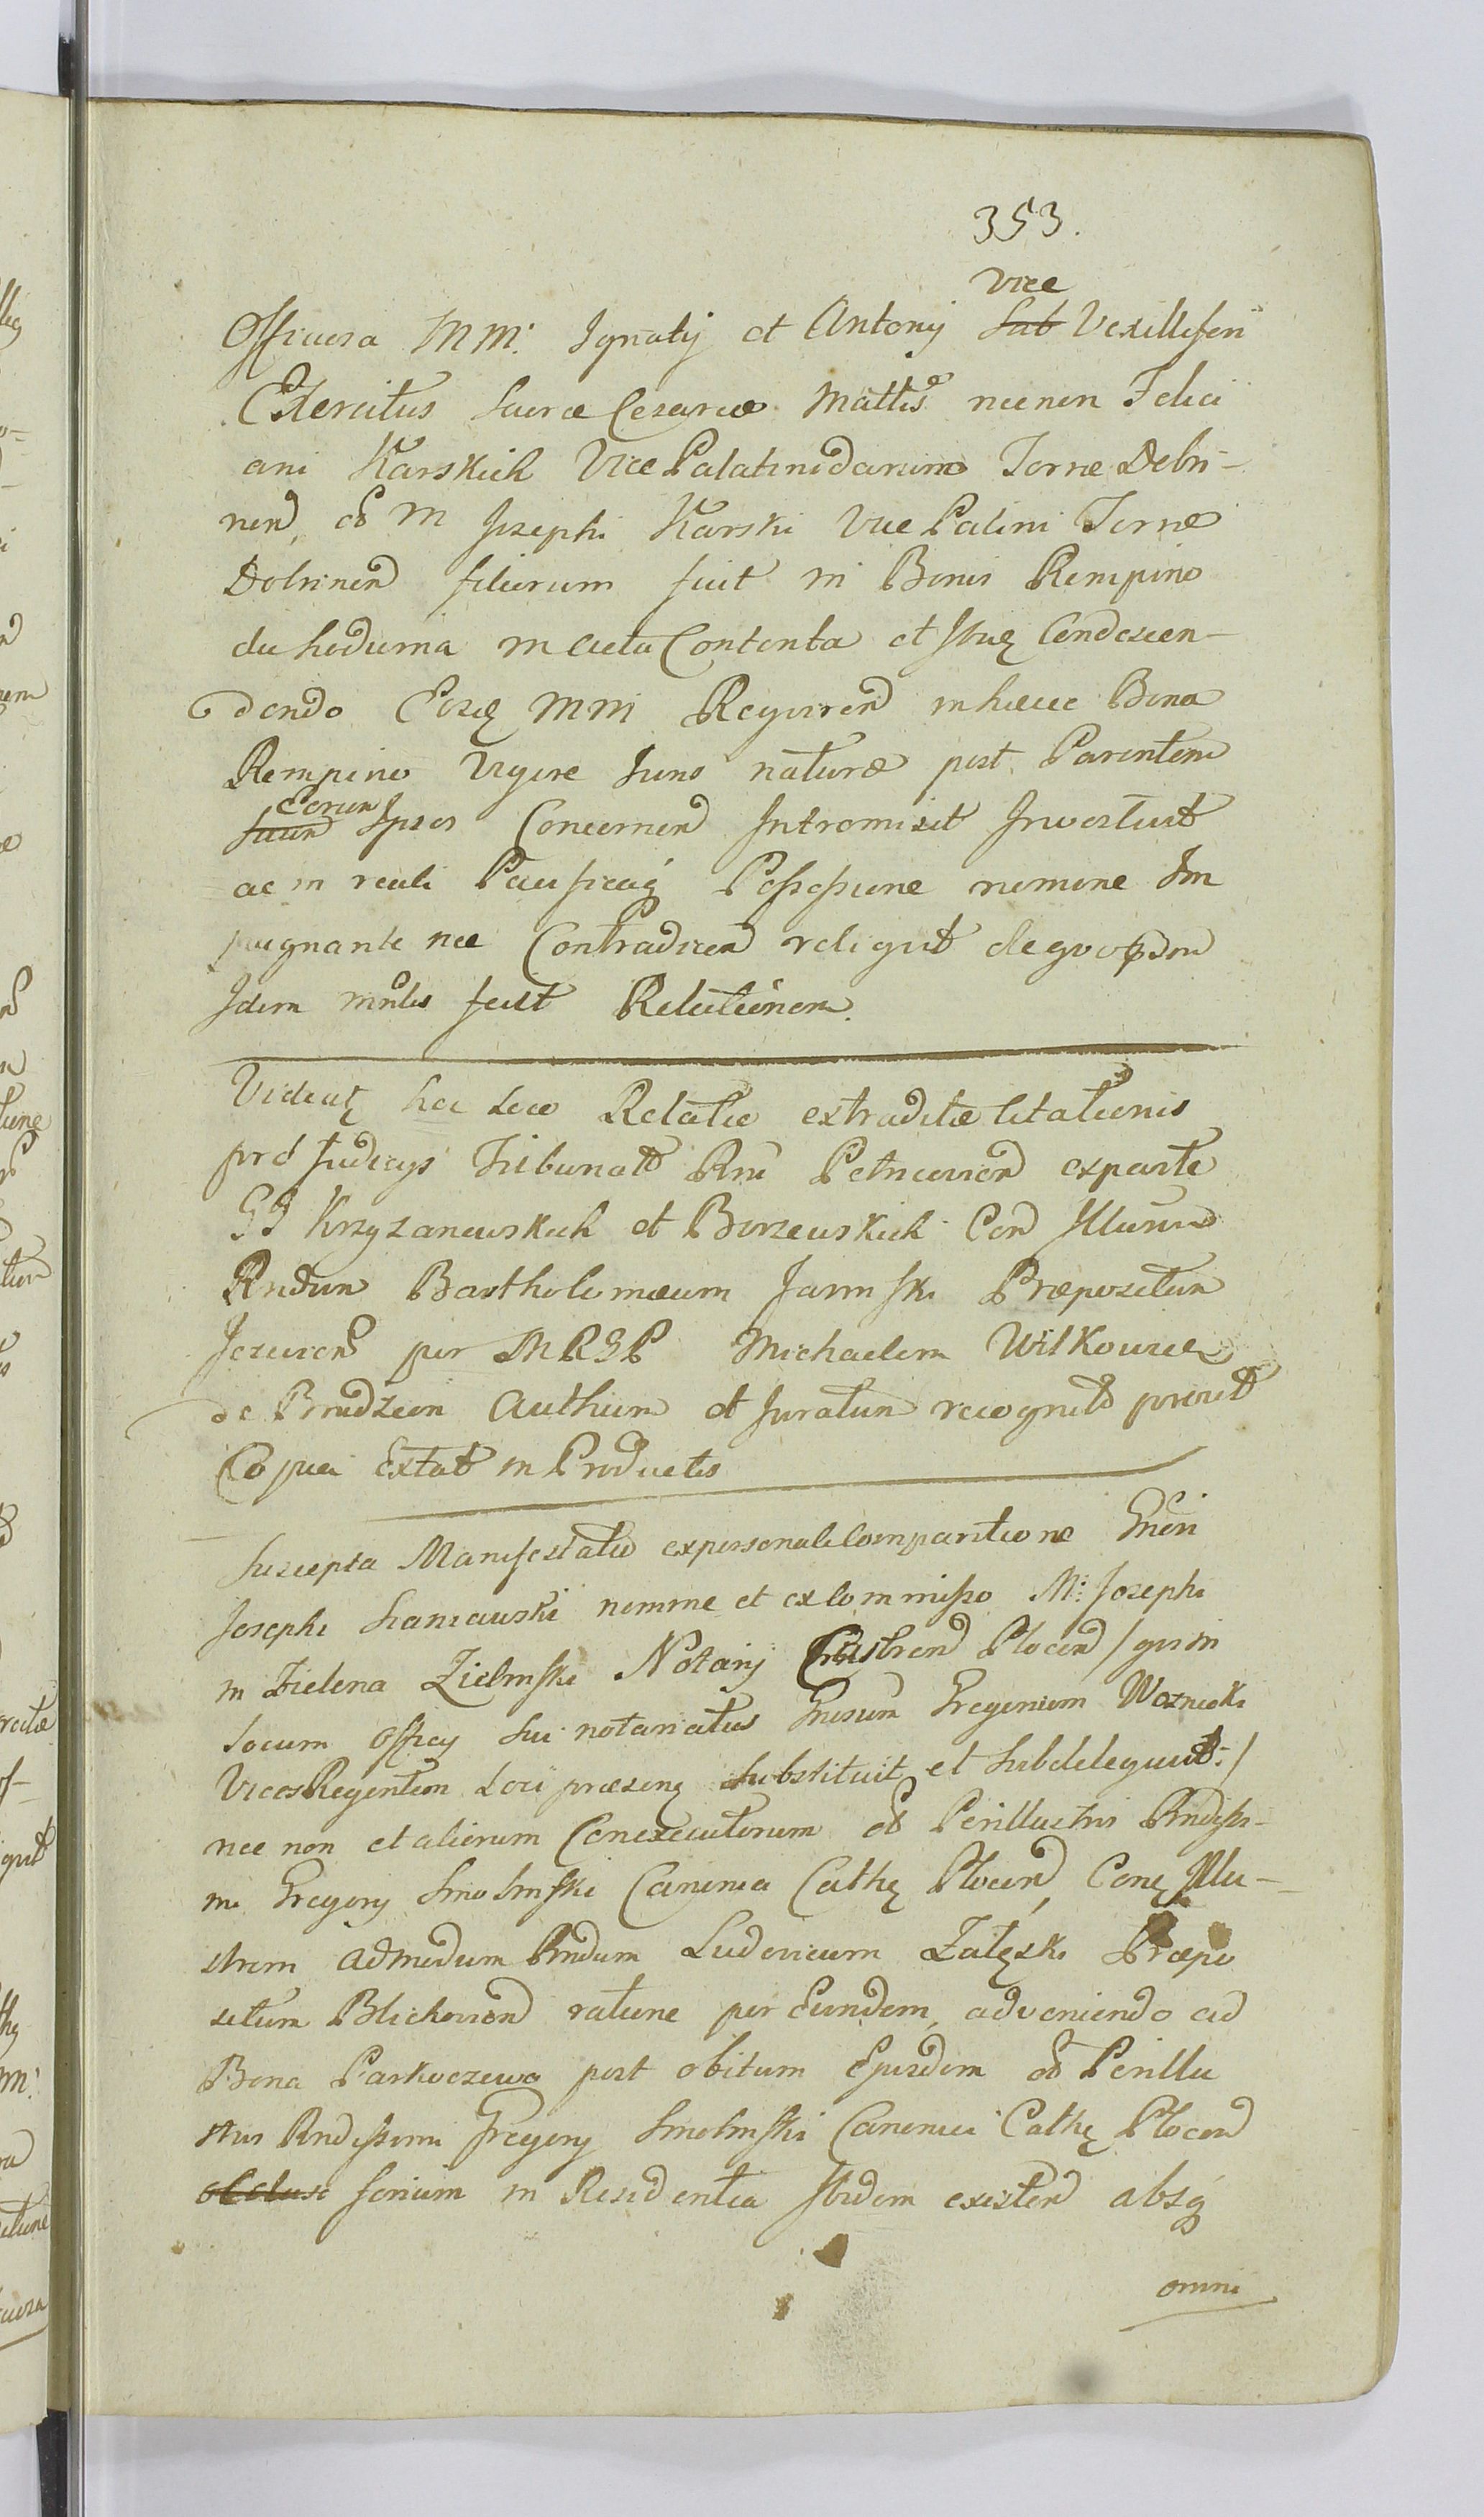 353.
vice
Officiosa MM: Ignatij et Antonij Sub Vexilliferi
Exercitus Sacræ Cezareæ Mattis necnon Felici
ani Karskich Vice Palatinidarum Terræ Dobri-
nen̄ ol M Josephi Karski Vice Palini Terræ
Dobrinen̄ filiorum fuit in Bonis Rempino
du hodierna in acta Contenta et Condescen-
dendo MM Requiren̄ in hæcce Bona
Rempino vigore Juris naturæ post Parentem
Eorum
Suum Ipsos Concernen̄ Intromisit Investivit
ac in reali Pacificaq Possessione nemine Im
pugnante nec Contradicen̄ reliquit de quo
Idem Mnlis fecit Relationem.
Videatur hoc loco Relatio extraditæ Citationis
pro Judicijs Tribunal Rni Petricovien̄ exparte
GG Krzyzanowskich et Borzewskich Con Illum
Rndum Bartholomæum Jarinski Præpositum
per MRGP Michaelem Wilkowicz
de Brudzeon Authum et Juratum recognit prout
Copia Extat in Productis
Suscepta Manifestatio expersonali Comparitione Gnēri
Josephi Haniawski nomine et ex Commisso M: Josephi
in Zielona Zielinski Notarij Castren̄ Plocen̄ / qui in
locum Officij Sui notariatus Gnrsum Gregorium Wozniecki
Vices Regentem loci præsenq Substituit et Subdelegavit: /
nec non et aliorum Conexecutorum ol Perillustris Rndissi-
mi Gregorij Smolinski Canonici Cathę Plocen̄, Conę Illu-
strem admodum Rndum Ludovicum Załęski Præpo
situm Blichovien̄ ratione per Eundem, adveniendo ad
Bona Parkoczewo post obitum Ejusdem ol Perillu
stris Rndissimi Gregorij Smolinski Canonici Cathę Plocen̄
obclusi scrinium in Residentia Ibidem existen̄ absq
omni